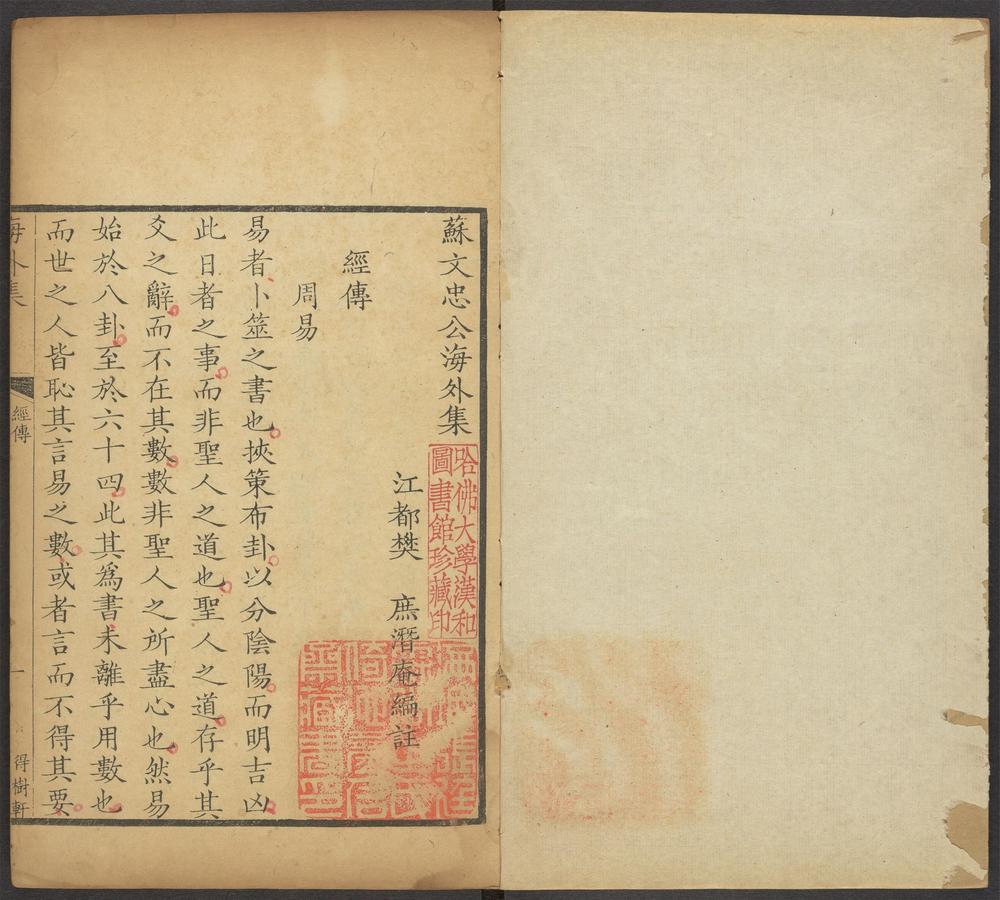 蘇文忠公海外集
哈佛大學漢和
圖書館珍藏印
江都樊　庶潛庵編註
經傳
周易
易者卜筮之書也挾策布卦以分陰陽而明吉凶
此日者之事而非聖人之道也聖人之道存乎其
爻之辭而不在其數數非聖人之所盡心也然易
始於八卦至於六十四此其爲書未離乎用數也
而世之人皆恥其言易之數或者言而不得其要
海外集
經傳
一
得樹軒